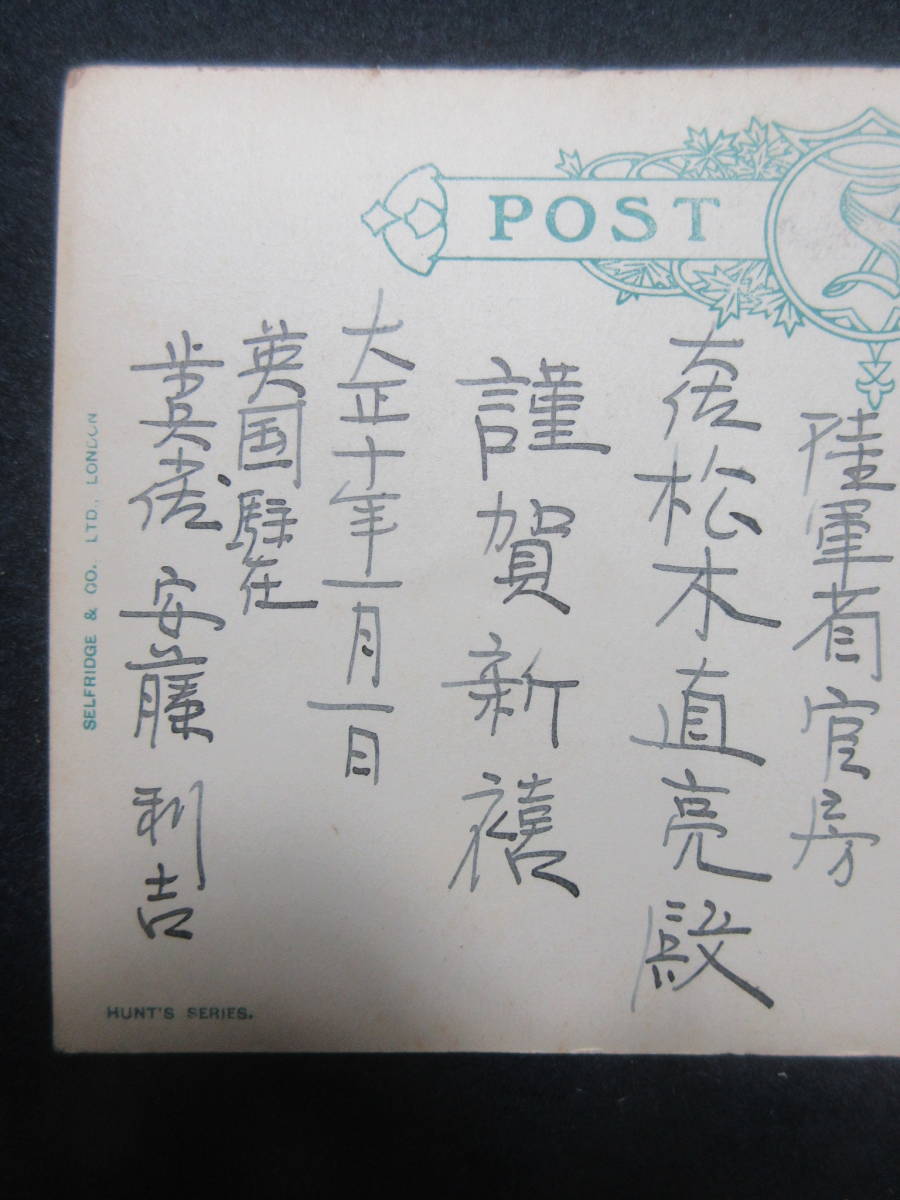 POST
陸軍省官房
大佐松木直亮殿
謹賀新禧
大正十年一月一日
英国駐在
歩兵少佐 安藤利吉
SELFRIDGE & CO. LTD., LONDON
HUNT'S SERIES.